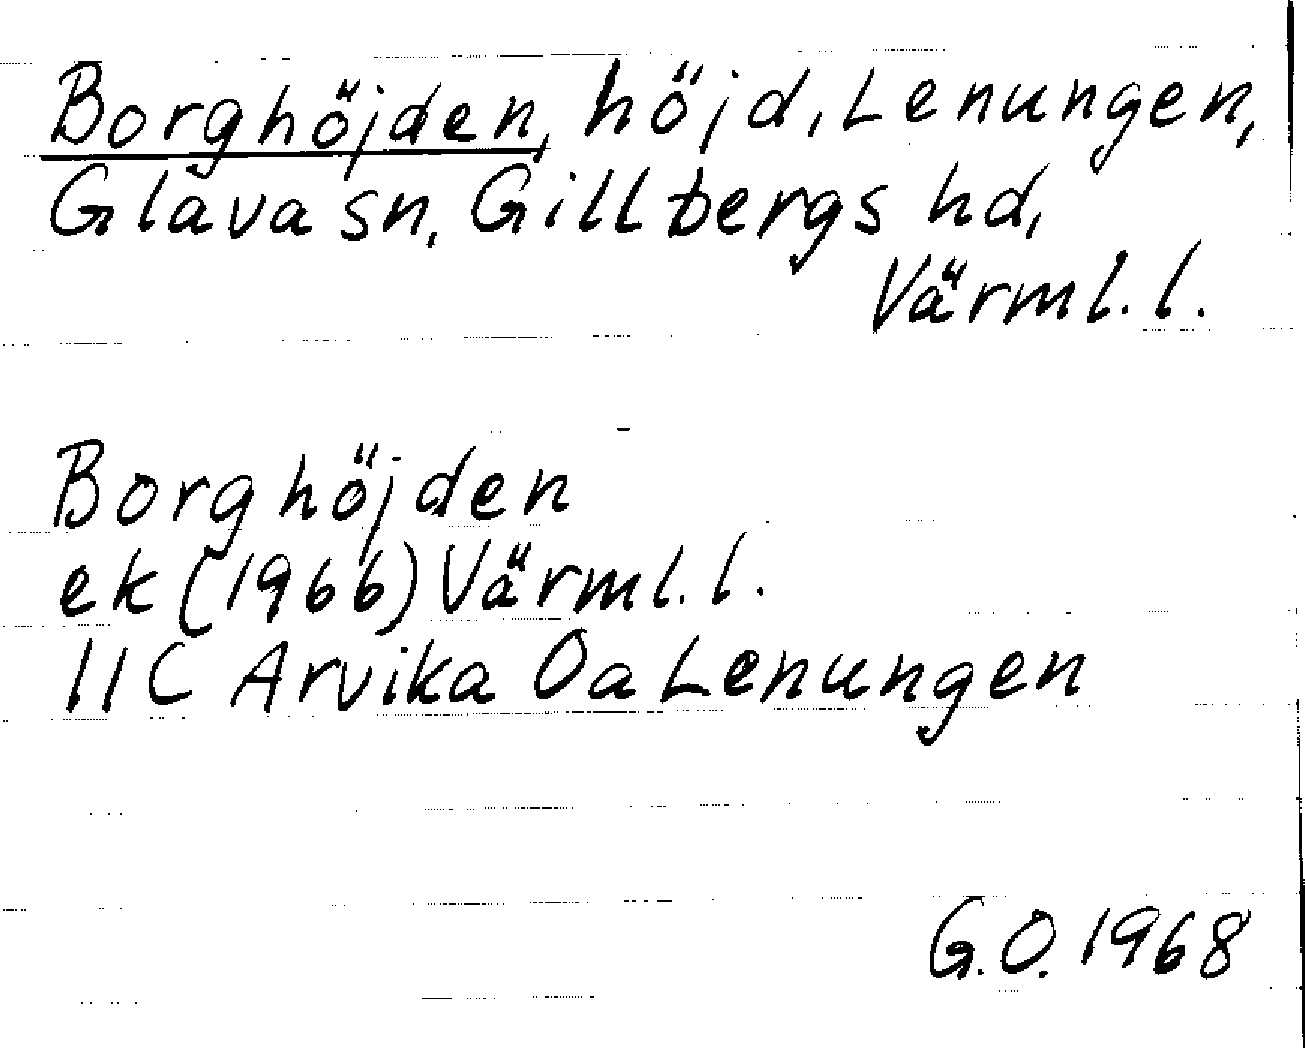 Borghöjden, höjd, Lenungen,
Glava sn, Gillbergs hd,
Värml. l.
Borghöjden
ek (1966) Värml. l.
11C Arvika 0a Lenungen
G.O. 1968